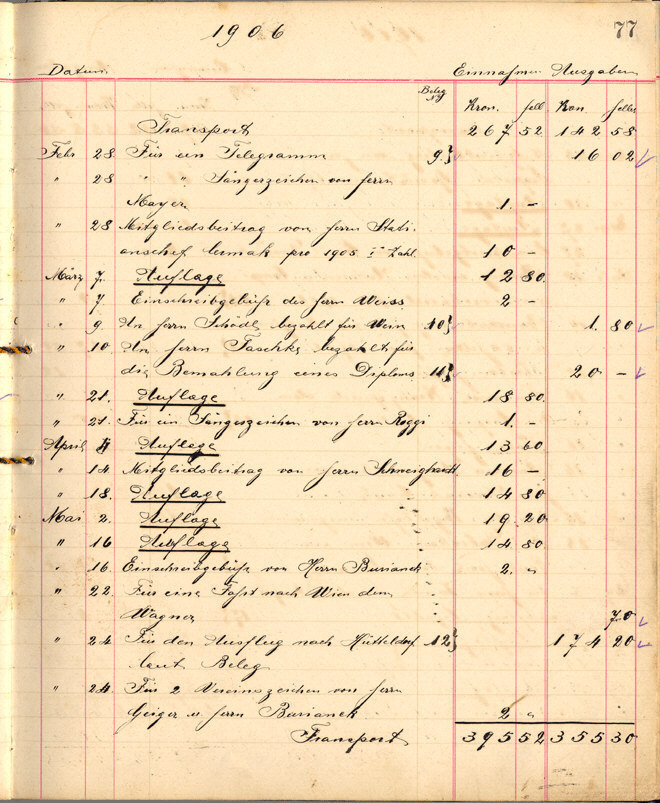 1906
77
Datum Einnahmen Ausgaben
Beleg No
Kron. hell Kron heller
Transport 267 52 142 58
Febr 28. Für ein Telegramm 9} 16 02
" 28 " " Sängerzeichen von Herrn
Mayer 1. -
" 28 Mitgliedsbeitrag von Herrn Stati-
onschef Cermak pro 1905 I Zahl. 10 -
März 7. Auflage 12 80.
" 7 Einschreibgebühr des Herrn Weiss 2 -
" 9 An Herrn Schödl bezahlt für Wein 10} 1. 80
" 10. An Herrn Taschke bezahlt für
die Bemahlung eines Diploms 11} 20 -
" 21. Auflage 18 80.
" 21. Für ein Sängerzeichen von Herrn Roggi 1. -
April 4 Auflage 13 60
" 14 Mitgliedsbeitrag von Herrn Schweighardt 16 -
" 18. Auflage 14 80
Mai 2. Auflage 19. 20
" 16 Auflage 14 80
" 16. Einschreibgebühr von Herrn Burianek 2. "
" 22. Für eine Fahrt nach Wien dem
Wagner 70
" 24 Für den Ausflug nach Hütteldorf 12} 174 20
laut Beleg
" 24. Für 2 Vereinszeichen von Herrn
Geiger u Herrn Burianek 2 "
Transport 395 52 355 30